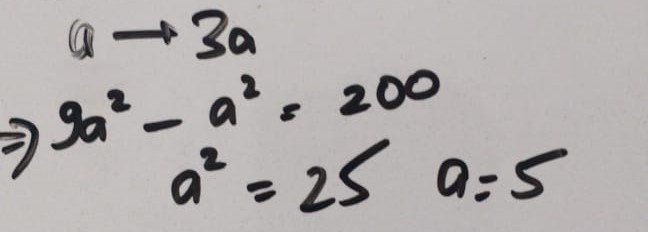 a → 3a
⇒ 9a² - a² = 200
a² = 25 a = 5